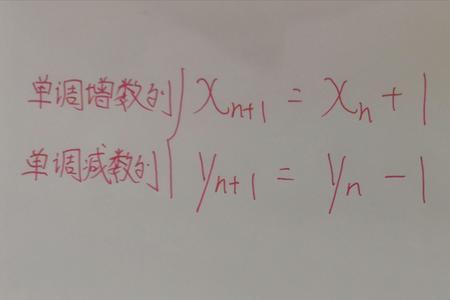 单调增数列 { xₙ₊₁ = xₙ + 1
单调减数列 { yₙ₊₁ = yₙ - 1